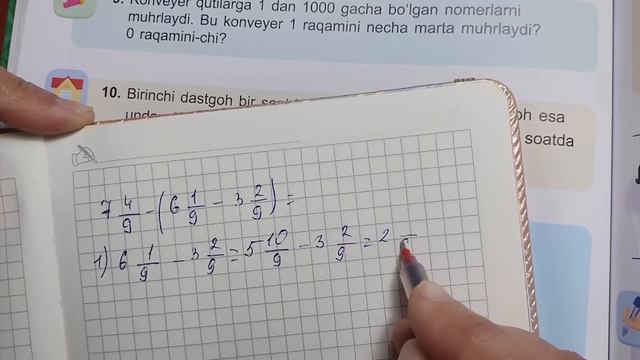 9. Konveyer qutilarga 1 dan 1000 gacha bo'lgan nomerlarni
muhrlaydi. Bu konveyer 1 raqamini necha marta muhrlaydi?
0 raqamini-chi?
10. Birinchi dastgoh bir
esa
soatda
7 4/9 - (6 1/9 - 3 2/9) =
1) 6 1/9 - 3 2/9 = 5 10/9 - 3 2/9 = 2